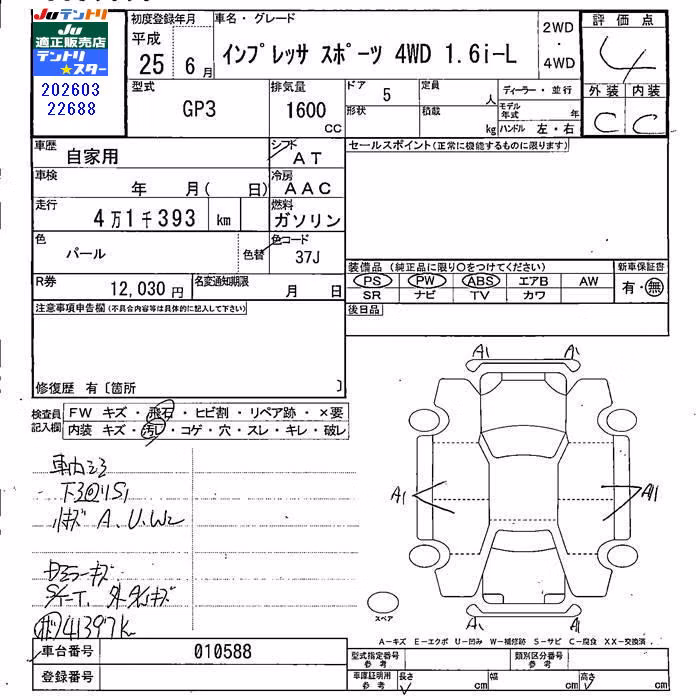 JUテントリ
JU
適正販売店
テントリ
★スター
202603
22688
初度登録年月
平成
25 6月
車名・グレード
インプレッサ スポーツ 4WD 1.6i-L
2WD
・
4WD
評価点
4
外装 内装
C C
型式
GP3
排気量
1600
CC
ドア
5
定員
人
形状
積載
kg
ディーラー・並行
モデル年式 年
ハンドル 左・右
車歴
自家用
シフト
AT
車検
年 月( 日)
冷房
AAC
走行
4万1千393 km
燃料
ガソリン
色
パール
色替
色コード
37J
R券
12,030円
名変通知期限
月 日
セールスポイント(正常に機能するものに限ります)
装備品 (純正品に限り○をつけてください)
PS PW ABS エアB AW
SR ナビ TV カワ
新車保証書
有・無
後日品
注意事項申告欄(不具合内容等は具体的に記入して下さい)
修復歴 有〔箇所 〕
検査員記入欄
FW キズ・飛石・ヒビ割・リペア跡・×要
内装 キズ・汚レ・コゲ・穴・スレ・キレ・破レ
A1 A1
A1
A1 A1
スペア
A-キズ E-エクボ U-凹み W-補修跡 S-サビ C-腐食 XX-交換済
車台番号
010588
登録番号
型式指定番号
参考
類別区分番号
参考
車庫証明用
参考
長さ cm
幅 cm
高さ cm